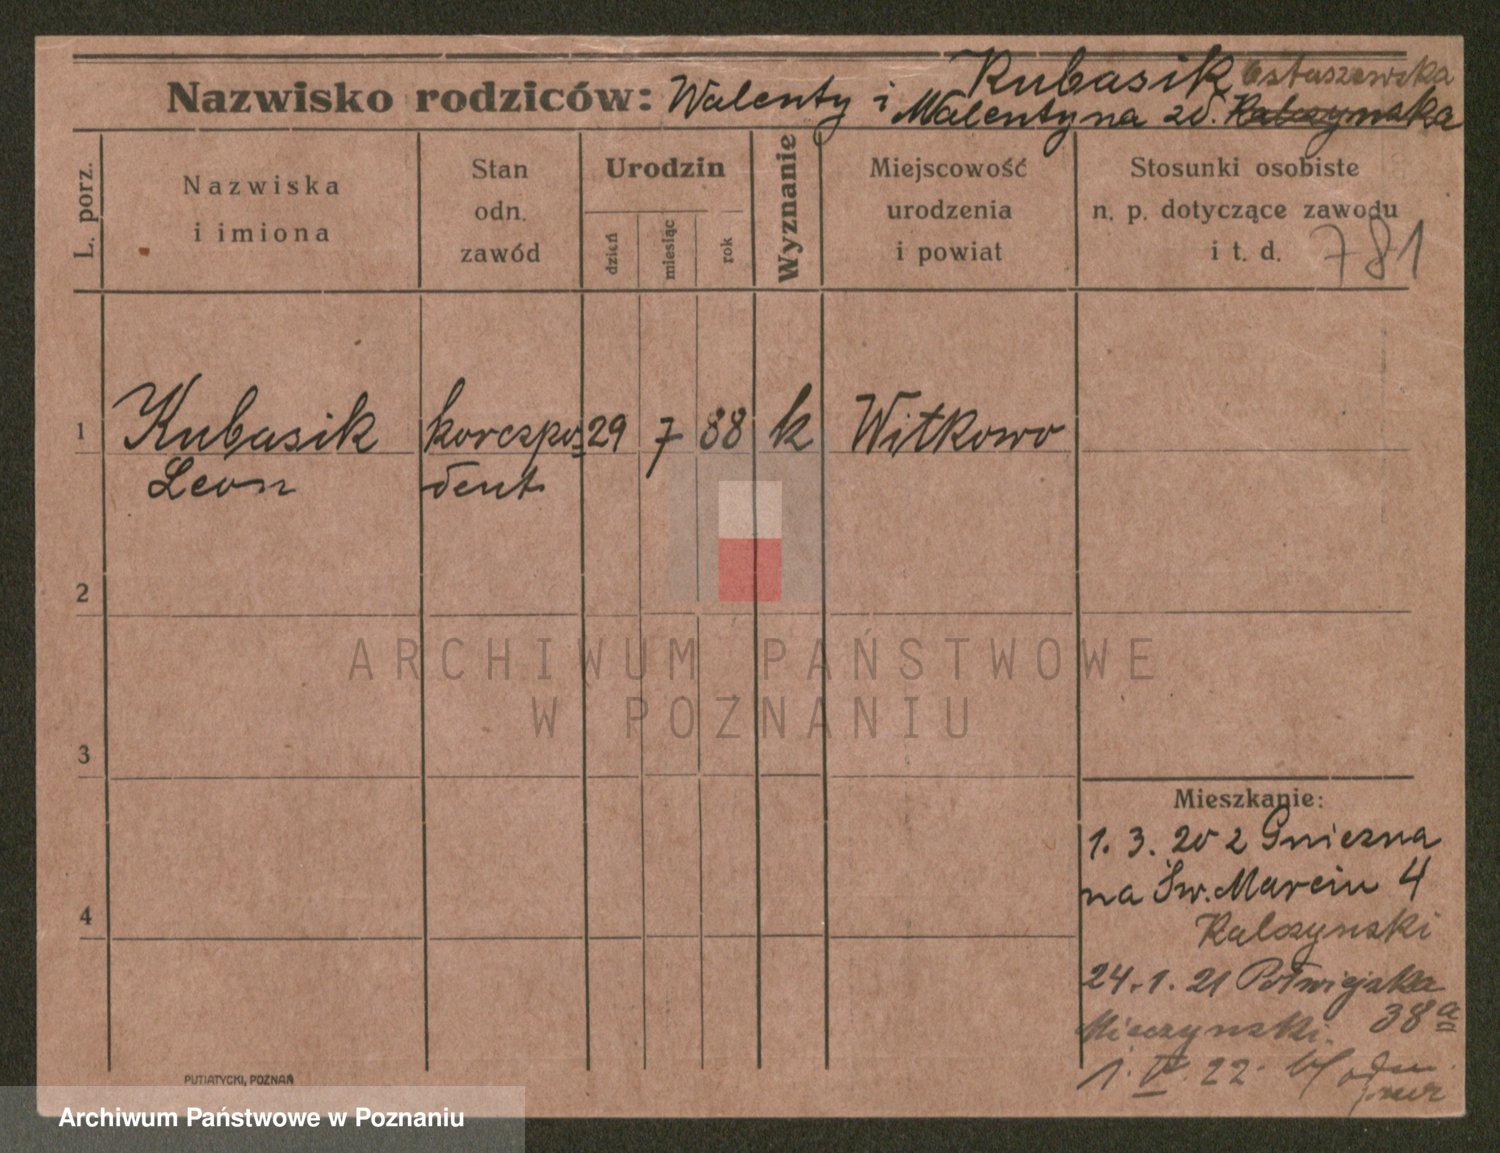 Kubasik Ostaszewska
Nazwisko rodziców: Walenty i Walentyna zd. Kalczynska
L. porz.
Nazwiska
i imiona
Stan
odn.
zawód
Urodzin
dzień
miesiąc
rok
Wyznanie
Miejscowość
urodzenia
i powiat
Stosunki osobiste
n. p. dotyczące zawodu
i t. d.
781
1 Kubasik korespo= 29 7 88 k Witkowo
Leon dent
2
3
4
ARCHIWUM PAŃSTWOWE
W POZNANIU
Mieszkanie:
1. 3. 20 z Gniezna
na Św. Marcin 4
Kalczynski
24. 1. 21 Półwiejska
38a
1. IV. 22.
PUTIATYCKI, POZNAŃ
Archiwum Państwowe w Poznaniu